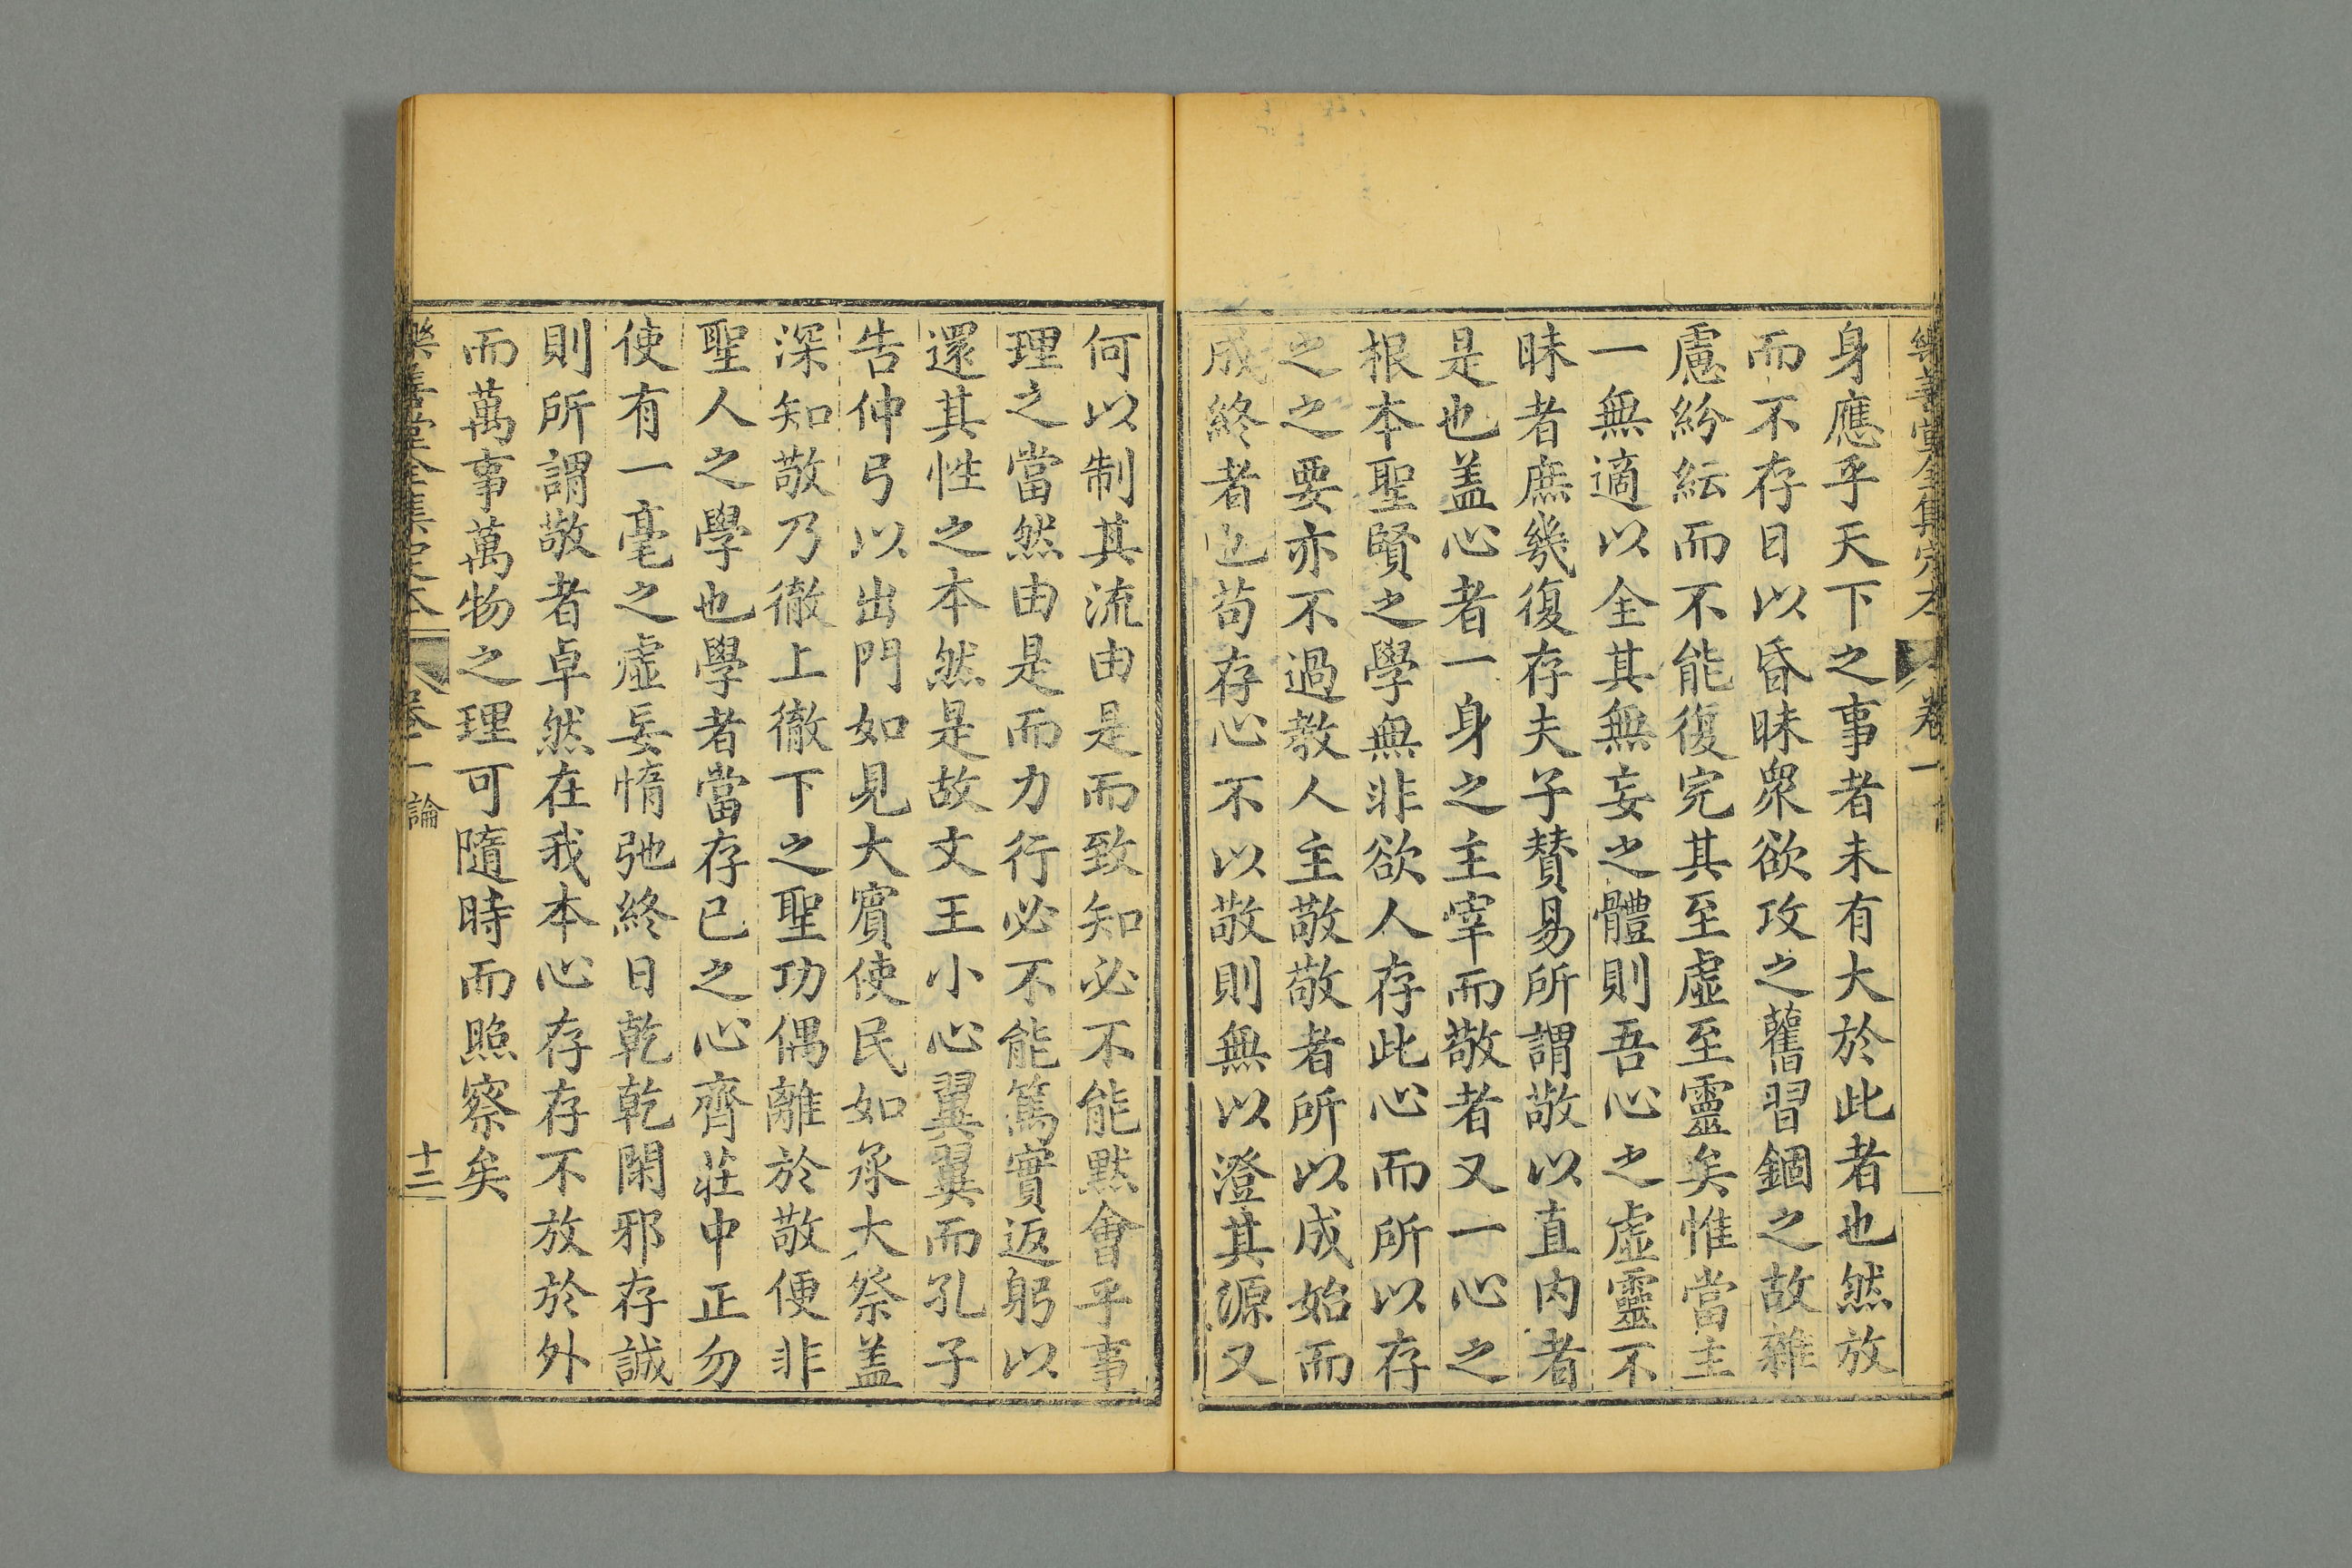 樂善堂全集定本 卷一
身應乎天下之事者未有大於此者也然放
而不存日以昏昧衆欲攻之舊習錮之故雜
慮紛紜而不能復完其至虛至靈矣惟當主
一無適以全其無妄之體則吾心之虛靈不
昧者庶幾復存夫子贊易所謂敬以直内者
是也盖心者一身之主宰而敬者又一心之
根本聖賢之學無非欲人存此心而所以存
之之要亦不過教人主敬敬者所以成始而
成終者也苟存心不以敬則無以澄其源又
何以制其流由是而致知必不能默會乎事
理之當然由是而力行必不能篤實返躬以
還其性之本然是故文王小心翼翼而孔子
告仲弓以出門如見大賓使民如承大祭盖
深知敬乃徹上徹下之聖功偶離於敬便非
聖人之學也學者當存已之心齊莊中正勿
使有一毫之虛妄惰弛終日乾乾閑邪存誠
則所謂敬者卓然在我本心存存不放於外
而萬事萬物之理可隨時而照察矣
樂善堂全集定本 卷一 論 十二